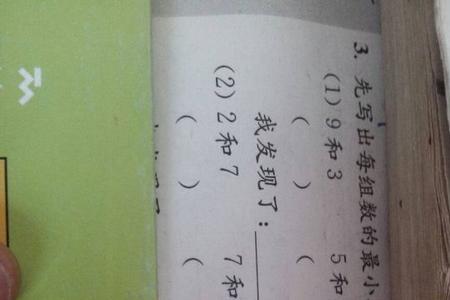 3. 先写出每组数的最小
(1) 9和3 5和
( ) (
我发现了：
(2) 2和7 7和
( ) (